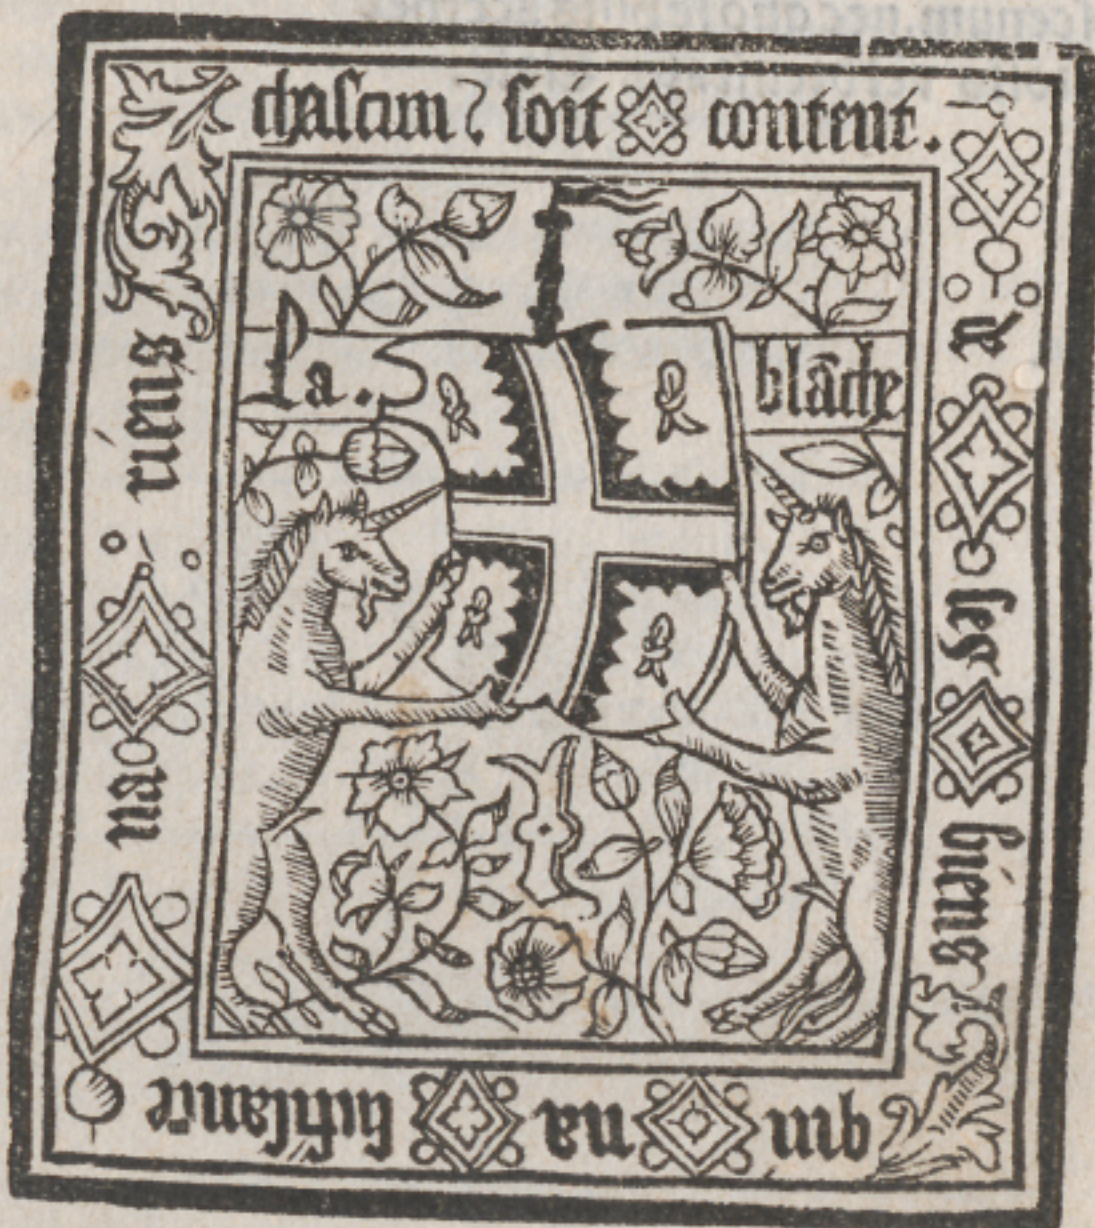 chaſcun ſoit content.
de ſes biens
qui na ſuffiſance
na riens
La. blāche